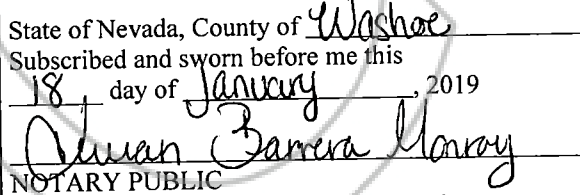 State of Nevada, County of Washoe
Subscribed and sworn before me this
18, day of January, 2019
Barrera Monroy
NOTARY PUBLIC